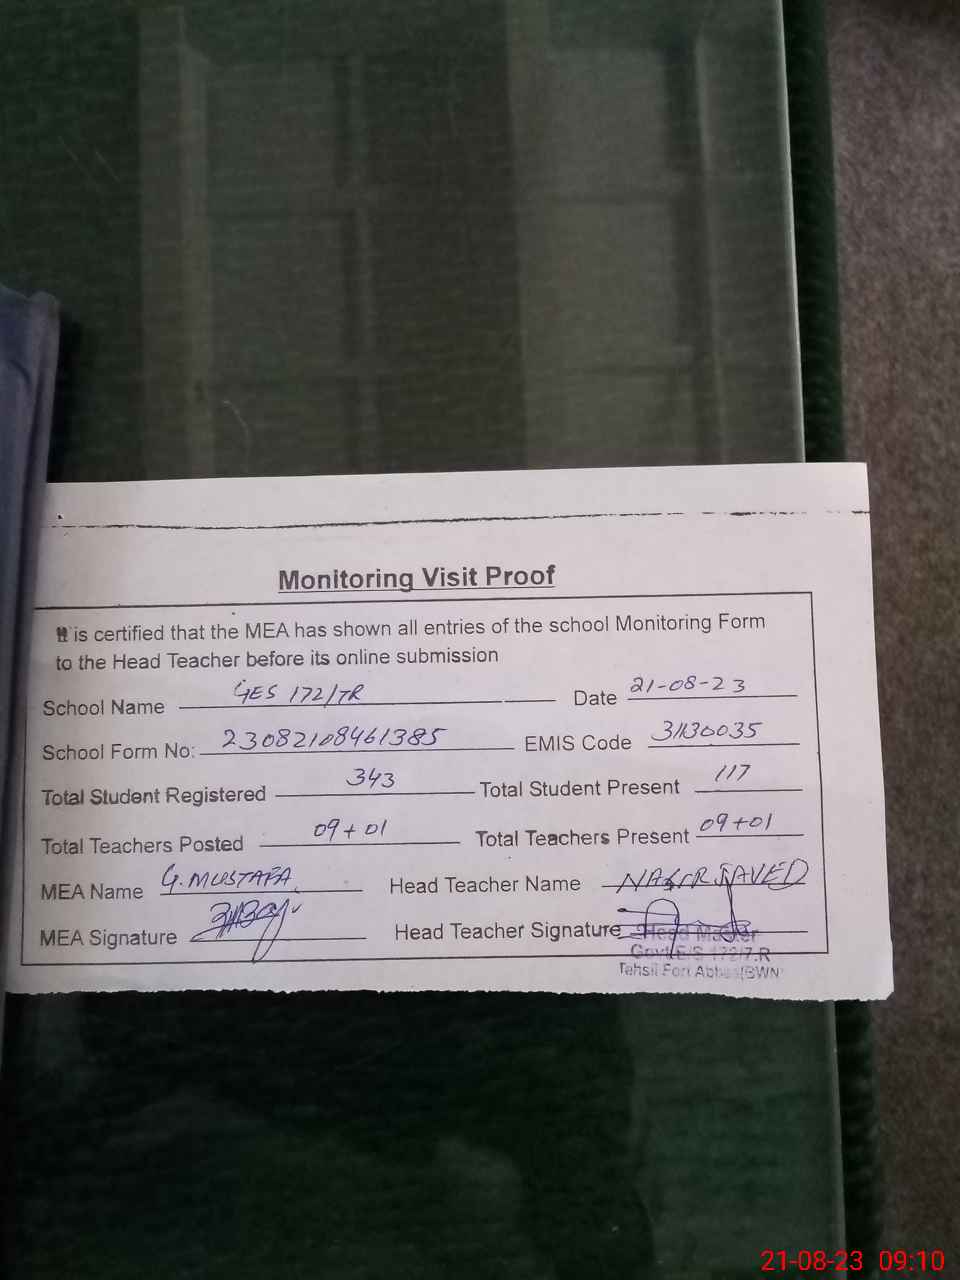 Monitoring Visit Proof
It is certified that the MEA has shown all entries of the school Monitoring Form
to the Head Teacher before its online submission
School Name GES 172/7R Date 21-08-23
School Form No: 23082108461385 EMIS Code 31130035
Total Student Registered 343 Total Student Present 117
Total Teachers Posted 09+01 Total Teachers Present 09+01
MEA Name G. MUSTAFA Head Teacher Name NASIR JAVED
MEA Signature Head Teacher Signature
Head Master
Govt. E/S 172/7.R
Tehsil Fort Abbas (BWN)
21-08-23 09:10